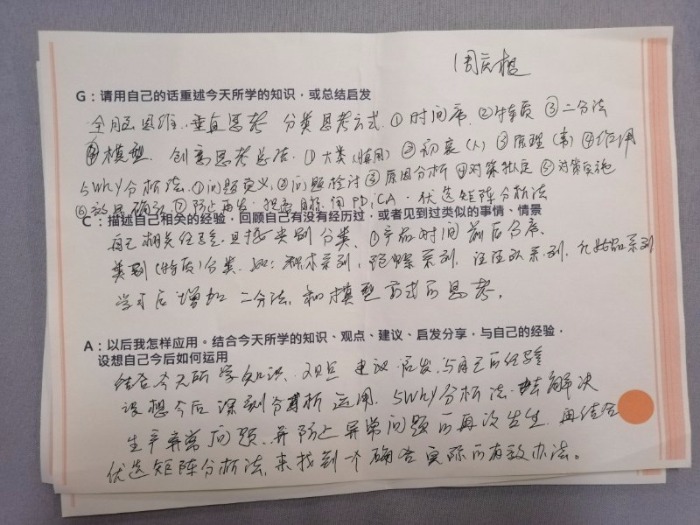 周庆
G：请用自己的话重述今天所学的知识，或总结启发
全脑思维、垂直思考 分类思考方式 ①时间序 ②特质 ③二分法
④模型 创高思考总法 ①大类(慎用) ②初衷(人) ③原理(事) ④作用
5Why分析法 ①问题定义 ②问题检讨 ③原因分析 ④对策拟定 ⑤对策实施
⑥效果确认 ⑦防止再发 目标用PDCA、优选矩阵分析法
C：描述自己相关的经验，回顾自己有没有经历过，或者见到过类似的事情、情景
自己相关经验是按类别分类、①产品时间前后分序
类别(特质)分类 如：积木系列，跑系列，汪汪队系列，化妆品系列
学习后增加二分法、和模型方式的思考。
A：以后我怎样应用。结合今天所学的知识、观点、建议、启发分享，与自己的经验，
设想自己今后如何运用
结合今天所学知识、观点 建议 启发，与自己的经验
设想今后深刻分析运用、5Why分析法 去解决
生产异常问题、并防止异常问题的再次发生、再结合
优选矩阵分析法，来找到一个确合实际的有效办法。